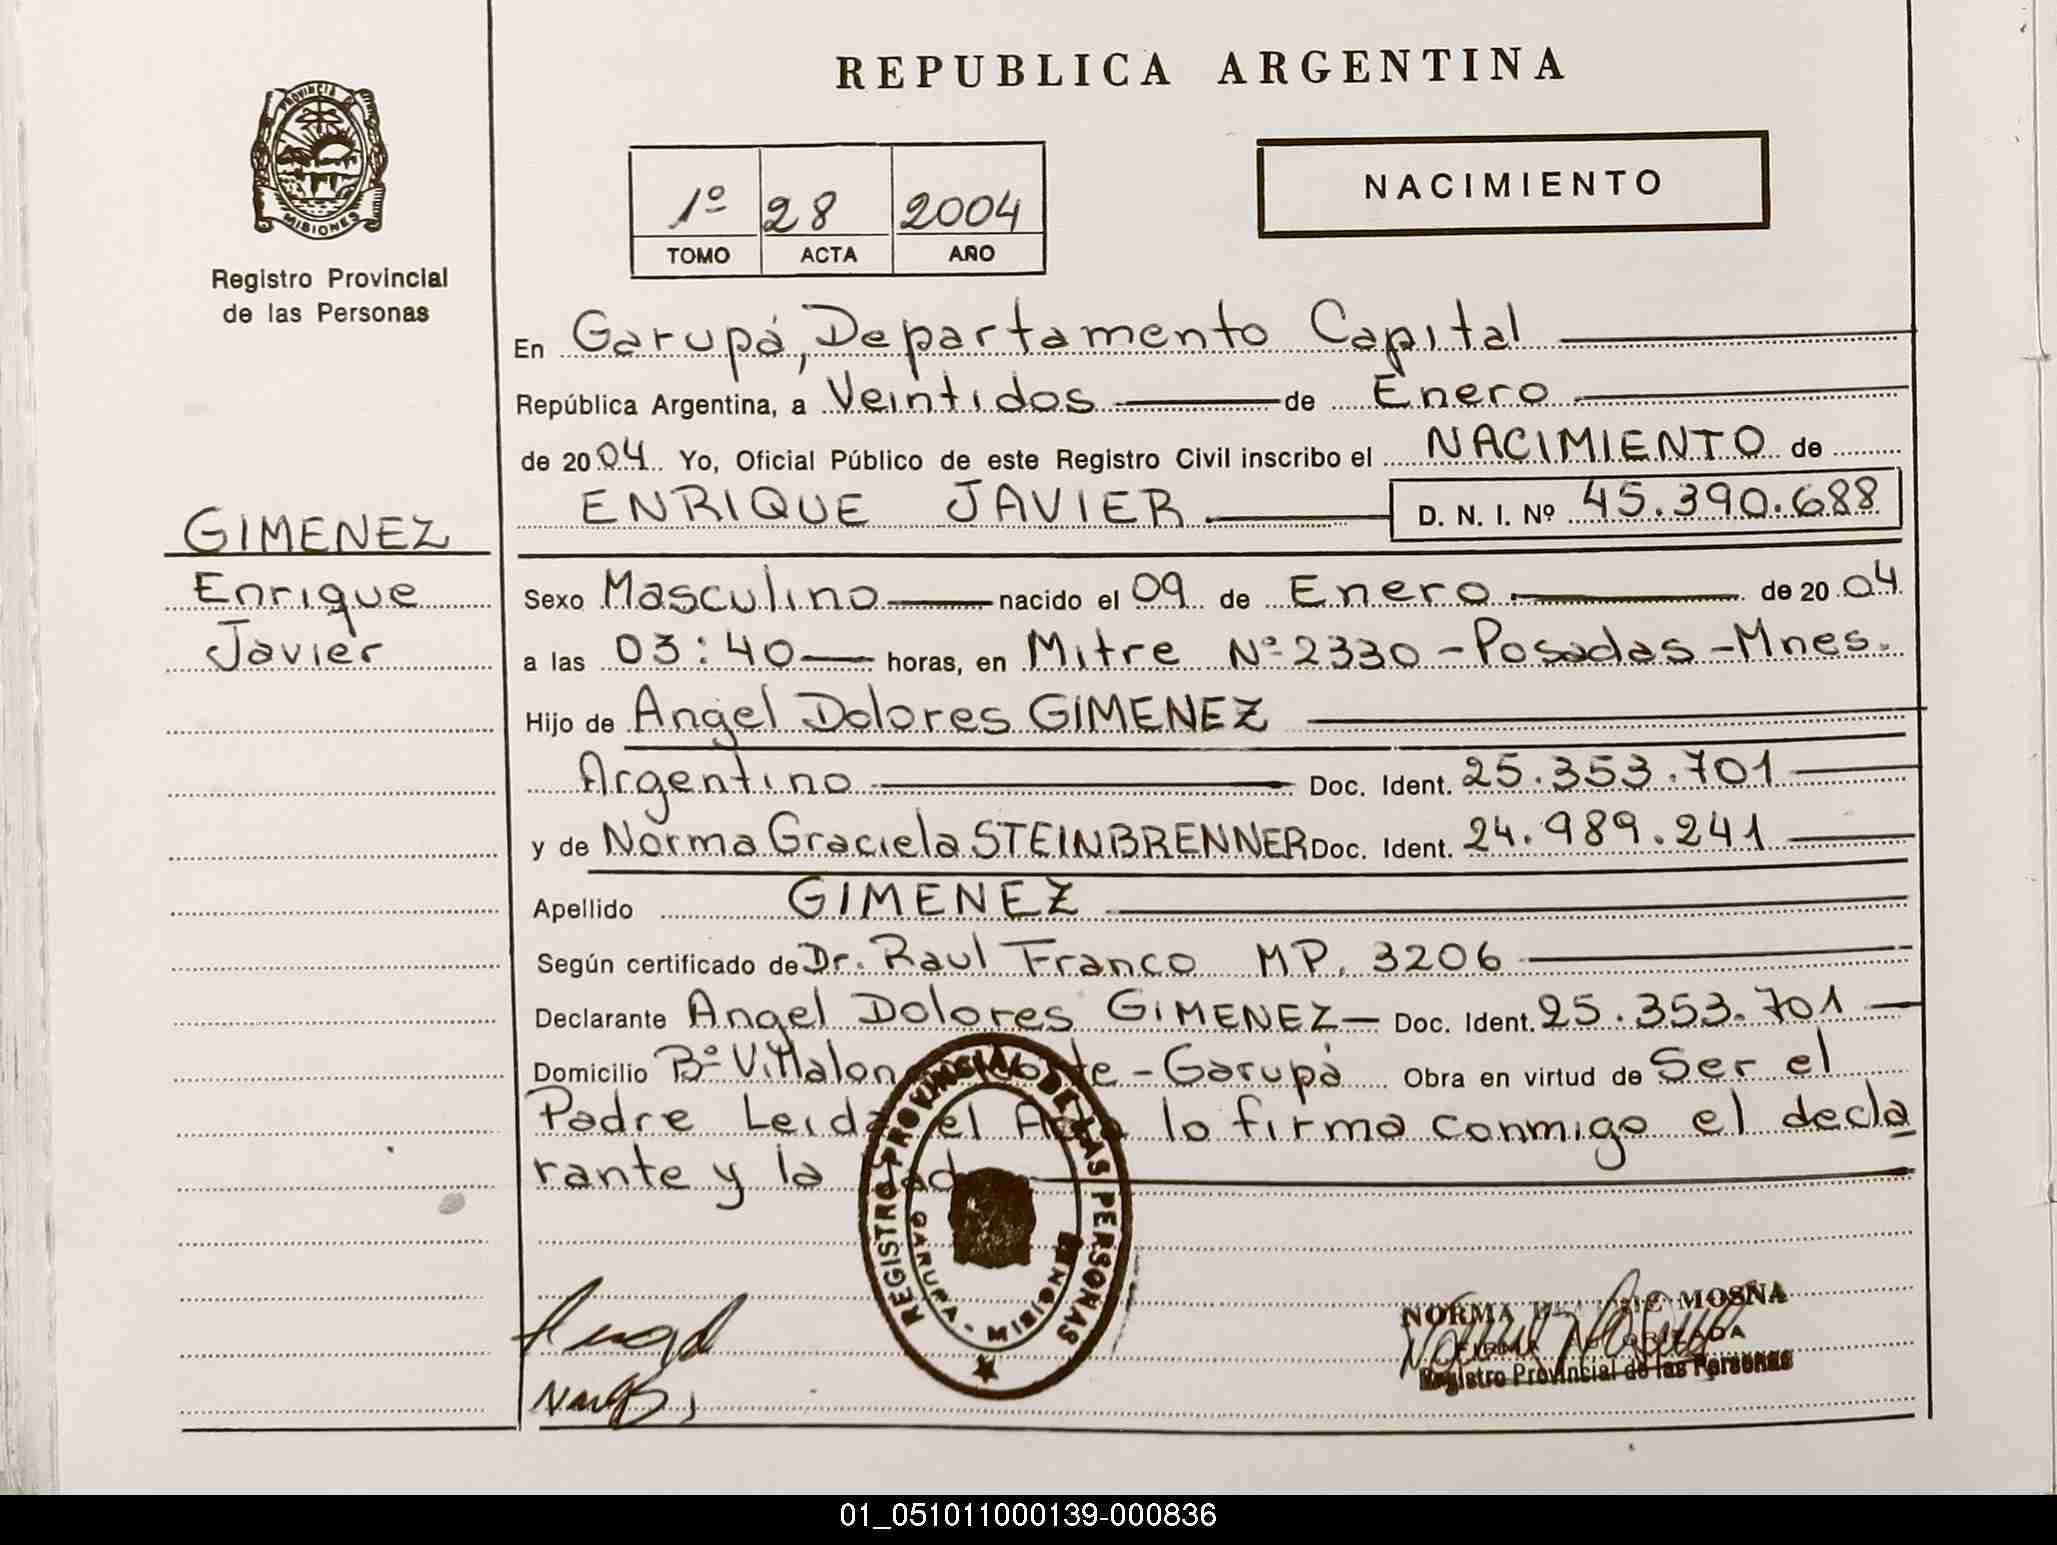 REPUBLICA ARGENTINA
PROVINCIA DE
MISIONES
Registro Provincial
de las Personas
1º 28 2004
TOMO ACTA AÑO
NACIMIENTO
En Garupá, Departamento Capital
República Argentina, a Veintidos de Enero
de 2004 Yo, Oficial Público de este Registro Civil inscribo el NACIMIENTO de
ENRIQUE JAVIER D. N. I. Nº 45.390.688
GIMENEZ
Enrique
Javier
Sexo Masculino nacido el 09 de Enero de 2004
a las 03:40 horas, en Mitre Nº 2330 - Posadas - Mnes.
Hijo de Angel Dolores GIMENEZ
Argentino Doc. Ident. 25.353.701
y de Norma Graciela STEINBRENNER Doc. Ident. 24.989.241
Apellido GIMENEZ
Según certificado de Dr. Raul Franco MP. 3206
Declarante Angel Dolores GIMENEZ - Doc. Ident. 25.353.701
Domicilio Bº Villalon - Garupá Obra en virtud de Ser el
Padre Leida el Acta lo firma conmigo el decla
rante y la
REGISTRO PROVINCIAL DE LAS PERSONAS
GARUPA - MISIONES
NORMA MOSNA
FIRMA AUTORIZADA
Registro Provincial de las Personas
01_051011000139-000836